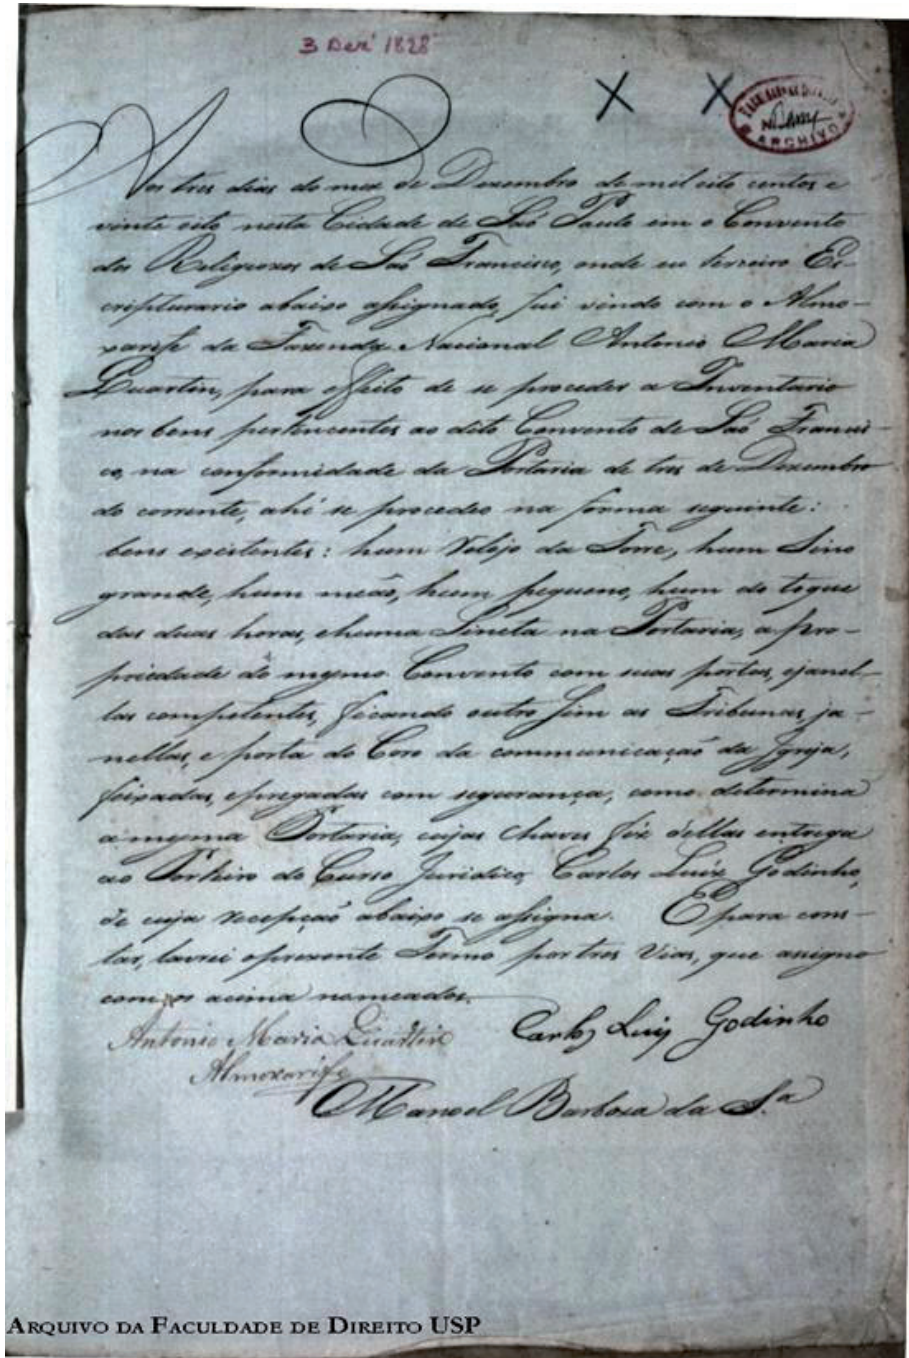 3 Dez 1828
ARCHIVO
Aos tres dias do mez de Dezembro de mil oito centos e
vinte oito nesta Cidade de Saõ Paulo em o Convento
dos Religiozos de Saõ Francisco, onde eu terceiro Es-
cripturario abaixo assignado, fui vindo com o Almo-
xarife da Fazenda Nacional Antonio Maria
Quartin, para effeito de se proceder a Inventario
nos bens pertencentes ao dito Convento de Saõ Francis-
co, na conformidade da Portaria de tres de Dezembro
do corrente, ahi se procedeo na forma seguinte:
bens existentes: hum Relojo da Torre, hum Sino
grande, hum meaõ, hum pequeno, hum do toque
das duas horas, e huma Sineta na Portaria, a pro-
priedade do mesmo Convento com suas portas, e janel-
las competentes, ficando outro sim as Tribunas, ja-
nellas, e porta do Coro da communicaçaõ da Igreja,
feixadas, e pregadas com segurança, como determina
a mesma Portaria, cujas chaves fiz dellas entrega
ao Porteiro do Curso Juridico, Carlos Luiz Godinho,
de cuja recepçaõ abaixo se assigna. E para cons-
tar, lavrei o prezente Termo por tres Vias, que assigno
com os acima nomeados.
Antonio Maria Quartin Carlos Luiz Godinho
Almoxarife
Manoel Barboza da S.a
ARQUIVO DA FACULDADE DE DIREITO USP